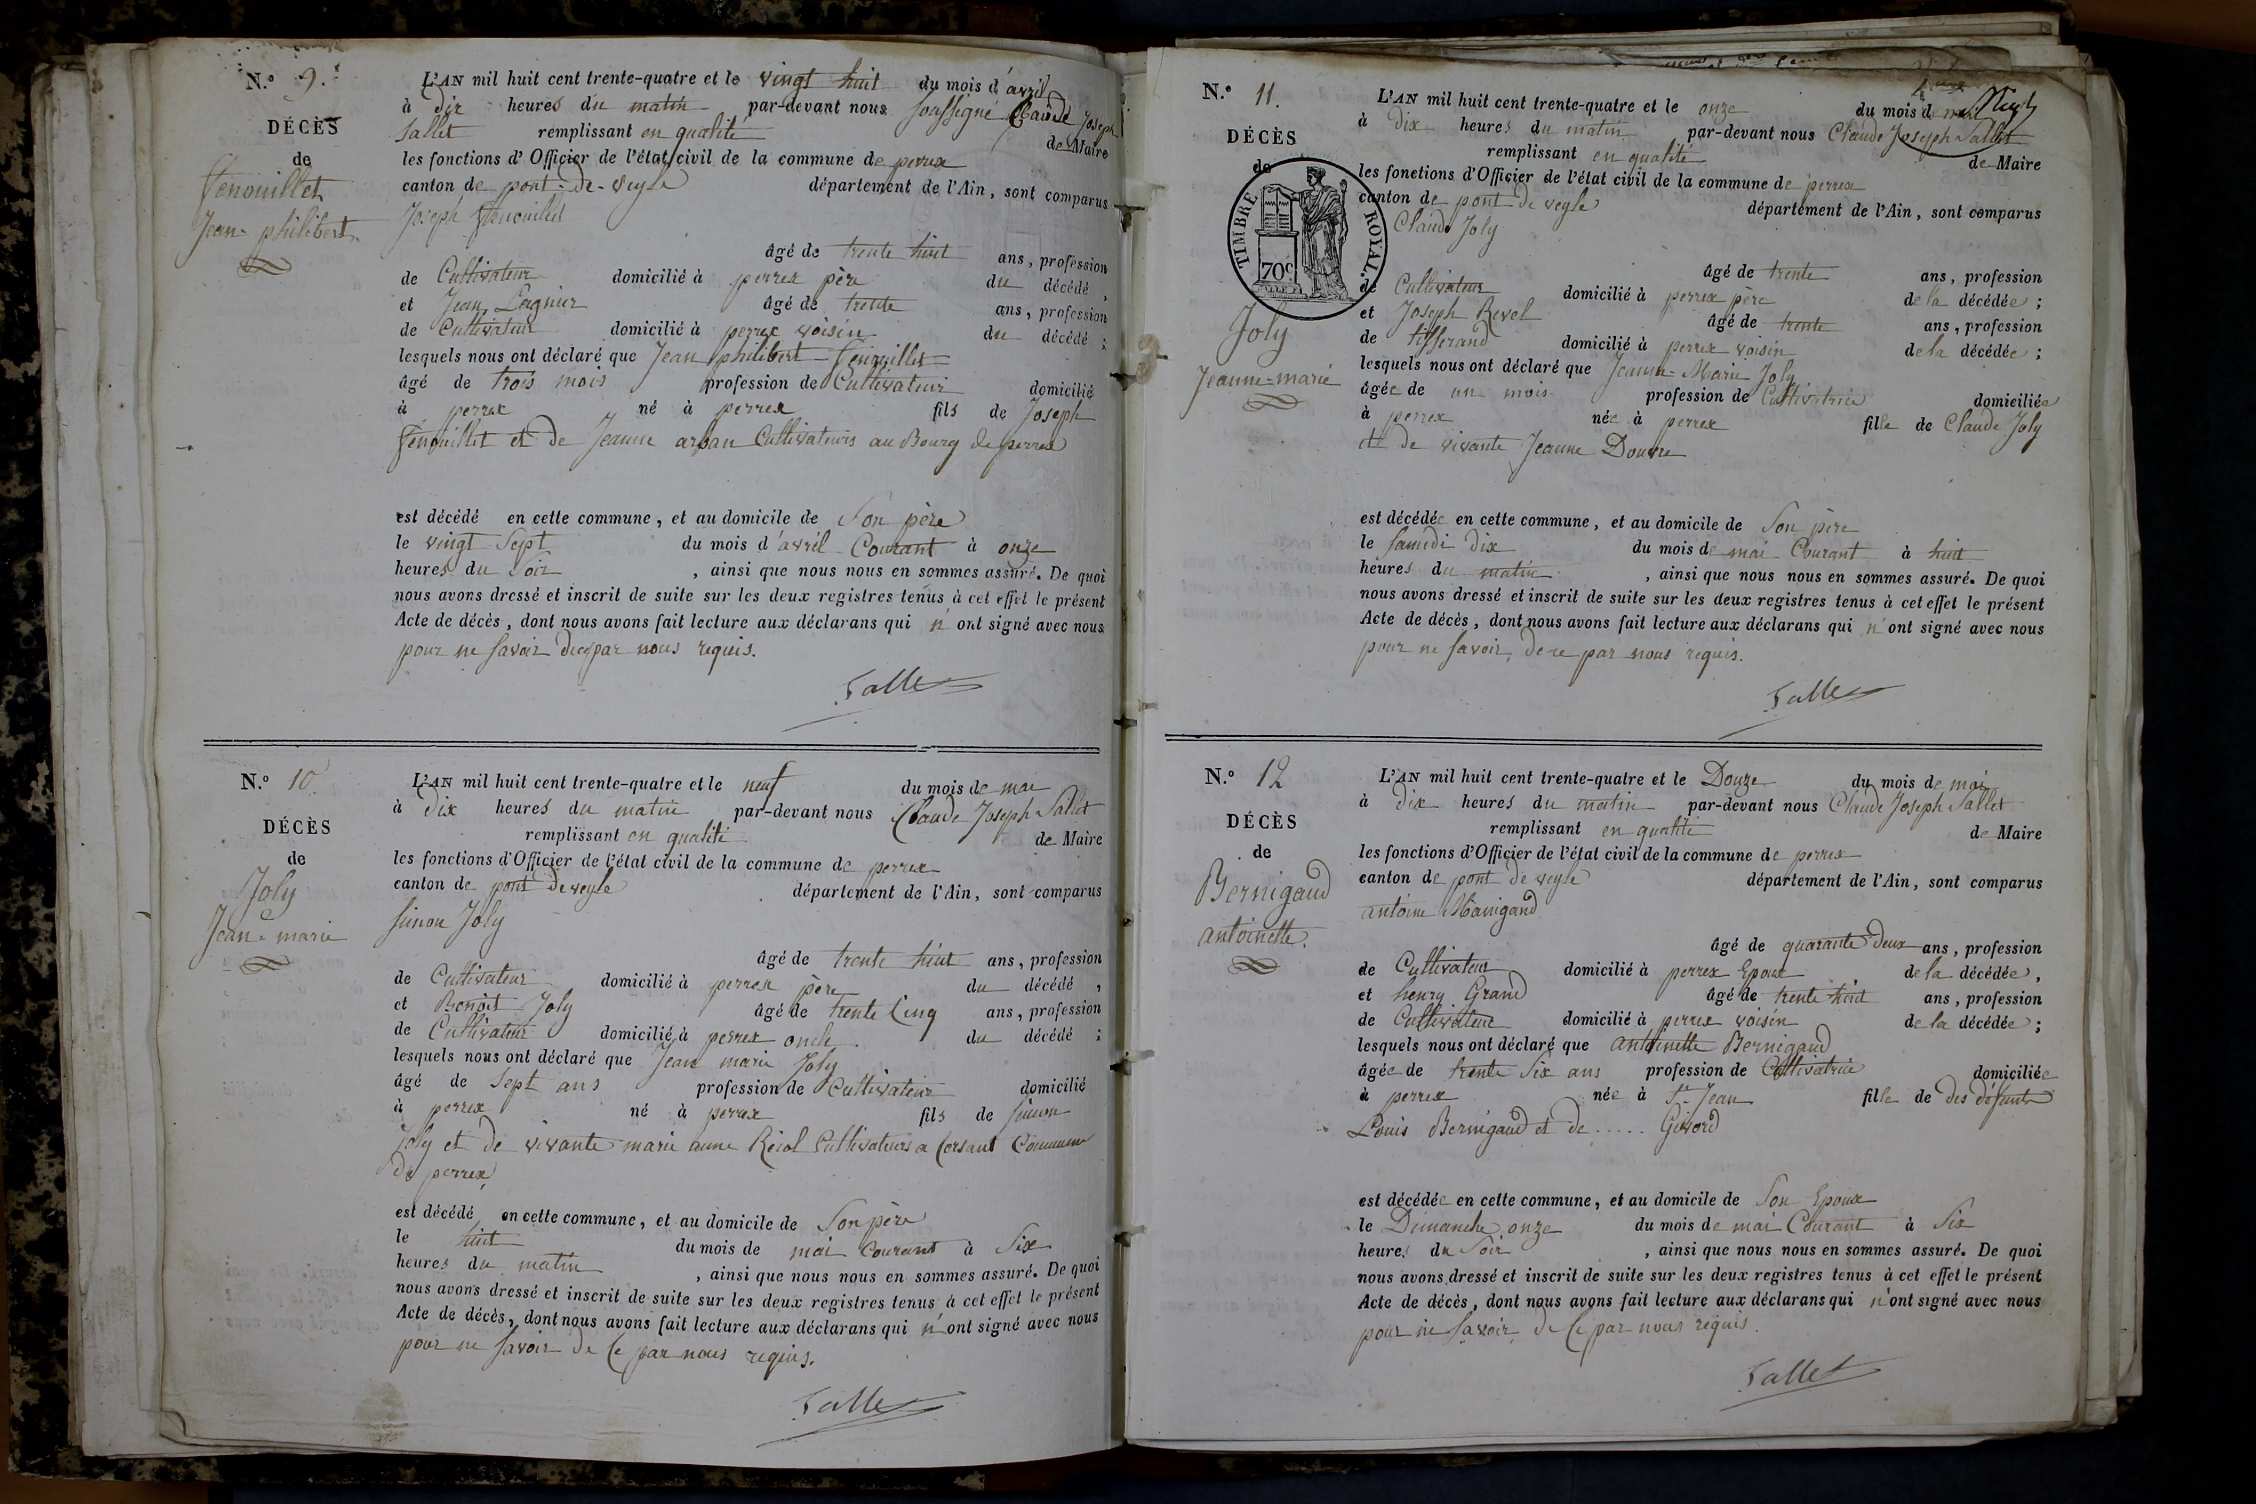 N.º 9.
DÉCÈS
de
fenouillet
Jean-philibert
L'AN mil huit cent trente-quatre et le vingt huit du mois d'avril
à dix heures du matin par-devant nous soussigné Claude Joseph
Sallet remplissant en qualité de Maire
les fonctions d'Officier de l'état civil de la commune de perrex
canton de pont-de-veyle département de l'Ain, sont comparus
Joseph fenouillet
âgé de trente huit ans, profession
de Cultivateur domicilié à perrex père du décédé,
et Jean Lagnier âgé de trente ans, profession
de Cultivateur domicilié à perrex voisin du décédé;
lesquels nous ont déclaré que Jean philibert fenouillet
âgé de trois mois profession de Cultivateur domicilié
à perrex né à perrex fils de Joseph
fenouillet et de Jeanne arban Cultivateurs au Bourg de perrex
est décédé en cette commune, et au domicile de Son père
le vingt Sept du mois d'avril Courant à onze
heures du Soir, ainsi que nous nous en sommes assuré. De quoi
nous avons dressé et inscrit de suite sur les deux registres tenus à cet effet le présent
Acte de décès, dont nous avons fait lecture aux déclarans qui n'ont signé avec nous
pour ne savoir de ce par nous requis.
Sallet
N.º 10.
DÉCÈS
de
Joly
Jean-marie
L'AN mil huit cent trente-quatre et le neuf du mois de mai
à dix heures du matin par-devant nous Claude Joseph Sallet
remplissant en qualité de Maire
les fonctions d'Officier de l'état civil de la commune de perrex
canton de pont de veyle département de l'Ain, sont comparus
Simon Joly
âgé de trente huit ans, profession
de Cultivateur domicilié à perrex père du décédé,
et Benoit Joly âgé de trente Cinq ans, profession
de Cultivateur domicilié à perrex oncle du décédé;
lesquels nous ont déclaré que Jean marie Joly
âgé de Sept ans profession de Cultivateur domicilié
à perrex né à perrex fils de Simon
Joly et de vivante marie anne Cultivateurs a Corsant Commune
de perrex
est décédé en cette commune, et au domicile de Son père
le huit du mois de mai Courant à Six
heures du matin, ainsi que nous nous en sommes assuré. De quoi
nous avons dressé et inscrit de suite sur les deux registres tenus à cet effet le présent
Acte de décès, dont nous avons fait lecture aux déclarans qui n'ont signé avec nous
pour ne savoir de Ce par nous requis.
Sallet
N.º 11.
DÉCÈS
de
TIMBRE ROYAL.
70c
Joly
Jeanne-marie
L'AN mil huit cent trente-quatre et le onze du mois de mai
à dix heures du matin par-devant nous Claude Joseph Sallet
remplissant en qualité de Maire
les fonctions d'Officier de l'état civil de la commune de perrex
canton de pont de veyle département de l'Ain, sont comparus
Claude Joly
âgé de trente ans, profession
de Cultivateur domicilié à perrex père de la décédée;
et Joseph Revel âgé de trente ans, profession
de tisserand domicilié à perrex voisin de la décédée;
lesquels nous ont déclaré que Jeanne-Marie Joly
âgée de un mois profession de Cultivatrice domiciliée
à perrex née à perrex fille de Claude Joly
et de vivante Jeanne Douvre
est décédée en cette commune, et au domicile de Son père
le samedi dix du mois de mai Courant à huit
heures du matin, ainsi que nous nous en sommes assuré. De quoi
nous avons dressé et inscrit de suite sur les deux registres tenus à cet effet le présent
Acte de décès, dont nous avons fait lecture aux déclarans qui n'ont signé avec nous
pour ne savoir, de ce par nous requis.
Sallet
N.º 12
DÉCÈS
de
Bernigaud
antoinette.
L'AN mil huit cent trente-quatre et le Douze du mois de mai
à dix heures du matin par-devant nous Claude Joseph Sallet
remplissant en qualité de Maire
les fonctions d'Officier de l'état civil de la commune de perrex
canton de pont de veyle département de l'Ain, sont comparus
antoine Manigand
âgé de quarante deux ans, profession
de Cultivateur domicilié à perrex Epoux de la décédée,
et henry Grand âgé de trente huit ans, profession
de Cultivateur domicilié à perrex voisin de la décédée;
lesquels nous ont déclaré que antoinette Bernigaud
âgée de trente Six ans profession de Cultivatrice domiciliée
à perrex née à St Jean fille de des défunts
Louis Bernigaud et de ..... Givord
est décédée en cette commune, et au domicile de Son Epoux
le Dimanche onze du mois de mai Courant à Six
heures du Soir, ainsi que nous nous en sommes assuré. De quoi
nous avons dressé et inscrit de suite sur les deux registres tenus à cet effet le présent
Acte de décès, dont nous avons fait lecture aux déclarans qui n'ont signé avec nous
pour ne savoir de Ce par nous requis.
Sallet